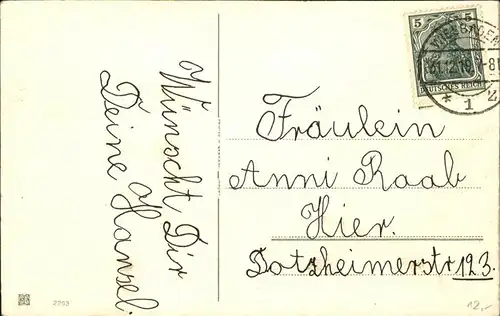 Wünscht Dir
Deine Hansel.
Fräulein
Anni Raab
Hier.
Dotzheimerstr 123.
5 5
DEUTSCHES REICH
WIESBADEN
31.12.16. 7-8
* 1 z
2293
12,-